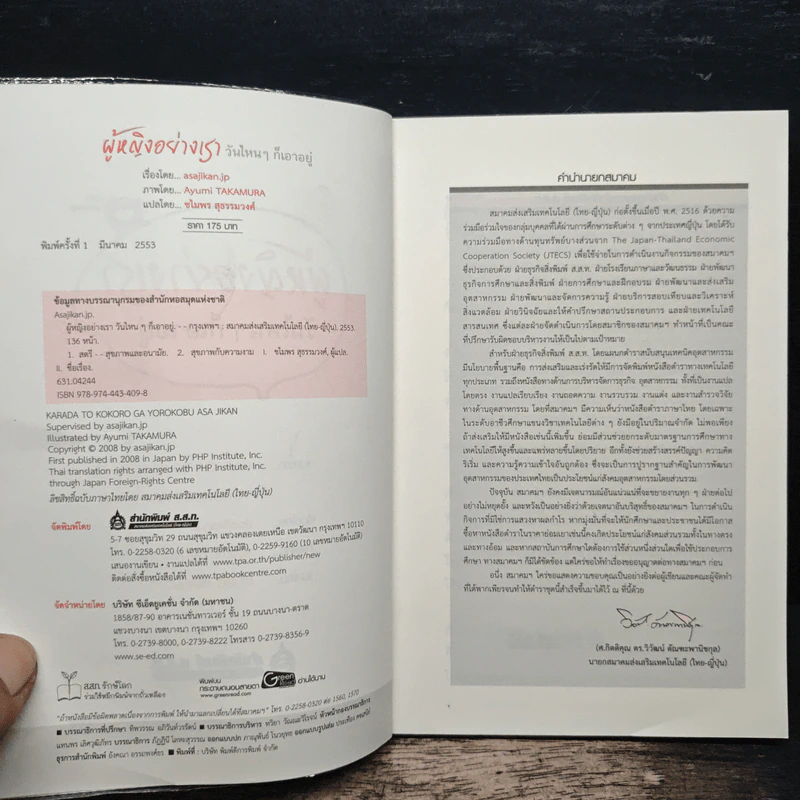 ผู้หญิงอย่างเรา วันไหนๆ ก็เอาอยู่
เรื่องโดย... asajikan.jp
ภาพโดย... Ayumi TAKAMURA
แปลโดย... ชไมพร สุธรรมวงศ์
ราคา 175 บาท
พิมพ์ครั้งที่ 1 มีนาคม 2553
ข้อมูลทางบรรณานุกรมของสำนักหอสมุดแห่งชาติ
Asajikan.jp.
ผู้หญิงอย่างเรา วันไหน ๆ ก็เอาอยู่. - - กรุงเทพฯ : สมาคมส่งเสริมเทคโนโลยี (ไทย-ญี่ปุ่น), 2553.
136 หน้า.
1. สตรี - - สุขภาพและอนามัย. 2. สุขภาพกับความงาม I. ชไมพร สุธรรมวงศ์, ผู้แปล.
II. ชื่อเรื่อง.
631.04244
ISBN 978-974-443-409-8
KARADA TO KOKORO GA YOROKOBU ASA JIKAN
Supervised by asajikan.jp
Illustrated by Ayumi TAKAMURA
Copyright © 2008 by asajikan.jp
First published in 2008 in Japan by PHP Institute, Inc.
Thai translation rights arranged with PHP Institute, Inc.
through Japan Foreign-Rights Centre
ลิขสิทธิ์ฉบับภาษาไทยโดย สมาคมส่งเสริมเทคโนโลยี (ไทย-ญี่ปุ่น)
จัดพิมพ์โดย
สำนักพิมพ์ ส.ส.ท.
สมาคมส่งเสริมเทคโนโลยี (ไทย-ญี่ปุ่น)
5-7 ซอยสุขุมวิท 29 ถนนสุขุมวิท แขวงคลองเตยเหนือ เขตวัฒนา กรุงเทพฯ 10110
โทร. 0-2258-0320 (6 เลขหมายอัตโนมัติ), 0-2259-9160 (10 เลขหมายอัตโนมัติ)
เสนองานเขียน • งานแปลได้ที่ www.tpa.or.th/publisher/new
ติดต่อสั่งซื้อหนังสือได้ที่ www.tpabookcentre.com
จัดจำหน่ายโดย บริษัท ซีเอ็ดยูเคชั่น จำกัด (มหาชน)
1858/87-90 อาคารเนชั่นทาวเวอร์ ชั้น 19 ถนนบางนา-ตราด
แขวงบางนา เขตบางนา กรุงเทพฯ 10260
โทร. 0-2739-8000, 0-2739-8222 โทรสาร 0-2739-8356-9
www.se-ed.com
ส.ส.ท. รักษ์โลก
ร่วมใช้หมึกพิมพ์จากถั่วเหลือง
พิมพ์บน
กระดาษถนอมสายตา
www.greenread.com
Green Read
อ่านได้นาน
"ถ้าหนังสือมีข้อผิดพลาดเนื่องจากการพิมพ์ ให้นำมาแลกเปลี่ยนได้ที่สมาคมฯ" โทร. 0-2258-0320 ต่อ 1560, 1570
■ บรรณาธิการที่ปรึกษา ทิพวรรณ อภิวันท์วรรัตน์ ■ บรรณาธิการบริหาร
บรรณาธิการ
ธุรการสำนักพิมพ์ อังคณา อรรถพงศ์ธร ■ พิมพ์ที่ : บริษัท พิมพ์ดีการพิมพ์ จำกัด
คำนำนายกสมาคม
สมาคมส่งเสริมเทคโนโลยี (ไทย-ญี่ปุ่น) ก่อตั้งขึ้นเมื่อปี พ.ศ. 2516 ด้วยความ
ร่วมมือร่วมใจของกลุ่มบุคคลที่ได้ผ่านการศึกษาระดับต่าง ๆ จากประเทศญี่ปุ่น โดยได้รับ
ความร่วมมือทางด้านทุนทรัพย์บางส่วนจาก The Japan-Thailand Economic
Cooperation Society (JTECS) เพื่อใช้จ่ายในการดำเนินงานกิจกรรมของสมาคมฯ
ซึ่งประกอบด้วย ฝ่ายธุรกิจสิ่งพิมพ์ ส.ส.ท. ฝ่ายโรงเรียนภาษาและวัฒนธรรม ฝ่ายพัฒนา
ธุรกิจการศึกษาและสิ่งพิมพ์ ฝ่ายการศึกษาและฝึกอบรม ฝ่ายพัฒนาและส่งเสริม
อุตสาหกรรม ฝ่ายพัฒนาและจัดการความรู้ ฝ่ายบริการสอบเทียบและวิเคราะห์
สิ่งแวดล้อม ฝ่ายวินิจฉัยและให้คำปรึกษาสถานประกอบการ และฝ่ายเทคโนโลยี
สารสนเทศ ซึ่งแต่ละฝ่ายจัดดำเนินการโดยสมาชิกของสมาคมฯ ทำหน้าที่เป็นคณะ
ที่ปรึกษารับผิดชอบบริหารงานให้เป็นไปตามเป้าหมาย
สำหรับฝ่ายธุรกิจสิ่งพิมพ์ ส.ส.ท. โดยแผนกตำราสนับสนุนเทคนิคอุตสาหกรรม
มีนโยบายพื้นฐานคือ การส่งเสริมและเร่งรัดให้มีการจัดพิมพ์หนังสือตำราทางเทคโนโลยี
ทุกประเภท รวมถึงหนังสือทางด้านการบริหารจัดการธุรกิจ อุตสาหกรรม ทั้งที่เป็นงานแปล
โดยตรง งานแปลเรียบเรียง งานถอดความ งานรวบรวม งานแต่ง และงานสำรวจวิจัย
ทางด้านอุตสาหกรรม โดยที่สมาคมฯ มีความเห็นว่าหนังสือตำราภาษาไทย โดยเฉพาะ
ในระดับอาชีวศึกษาแขนงวิชาเทคโนโลยีต่าง ๆ ยังมีอยู่ในปริมาณจำกัด ไม่พอเพียง
ถ้าส่งเสริมให้มีหนังสือเช่นนี้เพิ่มขึ้น ย่อมมีส่วนช่วยยกระดับมาตรฐานการศึกษาทาง
เทคโนโลยีให้สูงขึ้นและแพร่หลายขึ้นโดยปริยาย อีกทั้งยังช่วยสร้างสรรค์ปัญญา ความคิด
ริเริ่ม และความรู้ความเข้าใจอันถูกต้อง ซึ่งจะเป็นการปูรากฐานสำคัญในการพัฒนา
อุตสาหกรรมของประเทศไทยเป็นประโยชน์แก่สังคมอุตสาหกรรมโดยส่วนรวม
ปัจจุบัน สมาคมฯ ยังคงมีเจตนารมณ์อันแน่วแน่ที่จะขยายงานทุก ๆ ฝ่ายต่อไป
อย่างไม่หยุดยั้ง และหวังเป็นอย่างยิ่งว่าด้วยเจตนาอันบริสุทธิ์ของสมาคมฯ ในการดำเนิน
กิจการที่มิใช่การแสวงหาผลกำไร หากมุ่งมั่นที่จะให้นักศึกษาและประชาชนได้มีโอกาส
ซื้อหาหนังสือตำราในราคาย่อมเยาเช่นนี้คงเกิดประโยชน์แก่สังคมส่วนรวมทั้งในทางตรง
และทางอ้อม และหากสถาบันการศึกษาใดต้องการใช้ส่วนหนึ่งส่วนใดเพื่อใช้ประกอบการ
ศึกษา ทางสมาคมฯ ก็มิได้ขัดข้อง แต่ใคร่ขอให้ทำเรื่องขออนุญาตต่อทางสมาคมฯ ก่อน
อนึ่ง สมาคมฯ ใคร่ขอแสดงความขอบคุณเป็นอย่างยิ่งต่อผู้เขียนและคณะผู้จัดทำ
ที่ได้พากเพียรจนทำให้ตำราชุดนี้สำเร็จขึ้นมาได้ไว้ ณ ที่นี้ด้วย
(ศ.กิตติคุณ ดร.วิวัฒน์ ตัณฑะพานิชกุล)
นายกสมาคมส่งเสริมเทคโนโลยี (ไทย-ญี่ปุ่น)